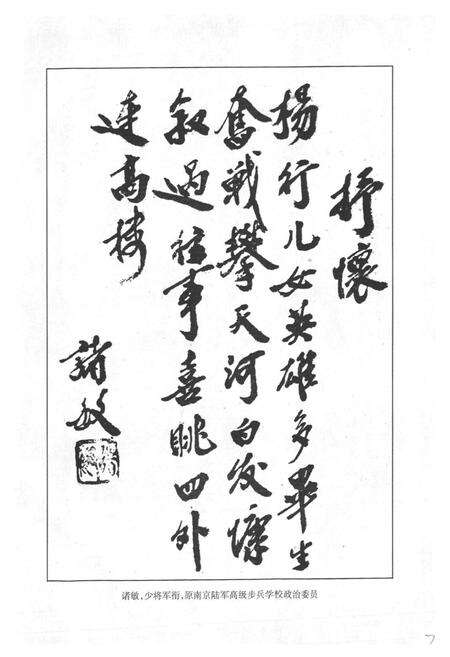 抒懷
楊行儿女英雄多畢生
奮戰攀天河白发慷
叙過往事喜眺四外
連高楼
諸敏
诸敏，少将军衔，原南京陆军高级步兵学校政治委员
7